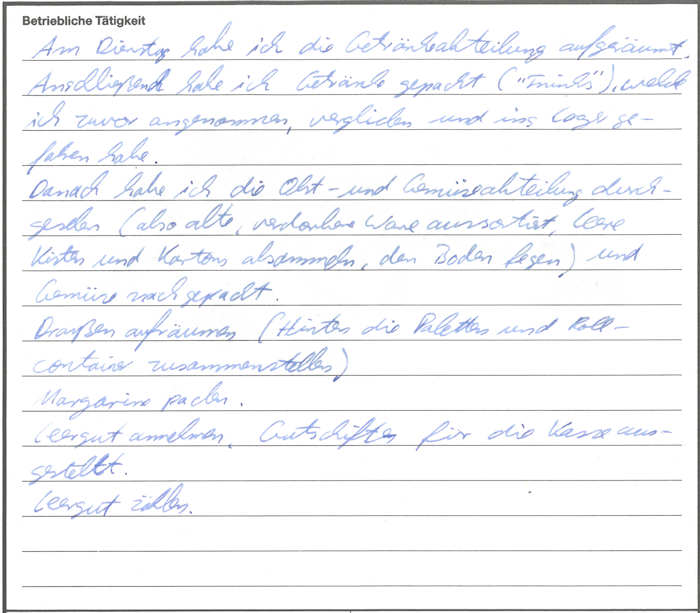 Betriebliche Tätigkeit
Am Dienstag habe ich die Getränkeabteilung aufgeräumt.
Anschließend habe ich Getränke gepackt ("Trinks"), welche
ich zuvor angenommen, verglichen und ins Lager ge-
fahren habe.
Danach habe ich die Obst- und Gemüseabteilung durch-
gesehen (also alte, verdorbene Ware aussortiert, leere
Kisten und Kartons absammeln, den Boden fegen) und
Gemüse nachgepackt.
Draußen aufräumen (Hinten die Paletten und Roll-
container zusammenstellen)
Margarine packen.
Leergut annehmen, Gutschriften für die Kasse aus-
gestellt.
Leergut zählen.